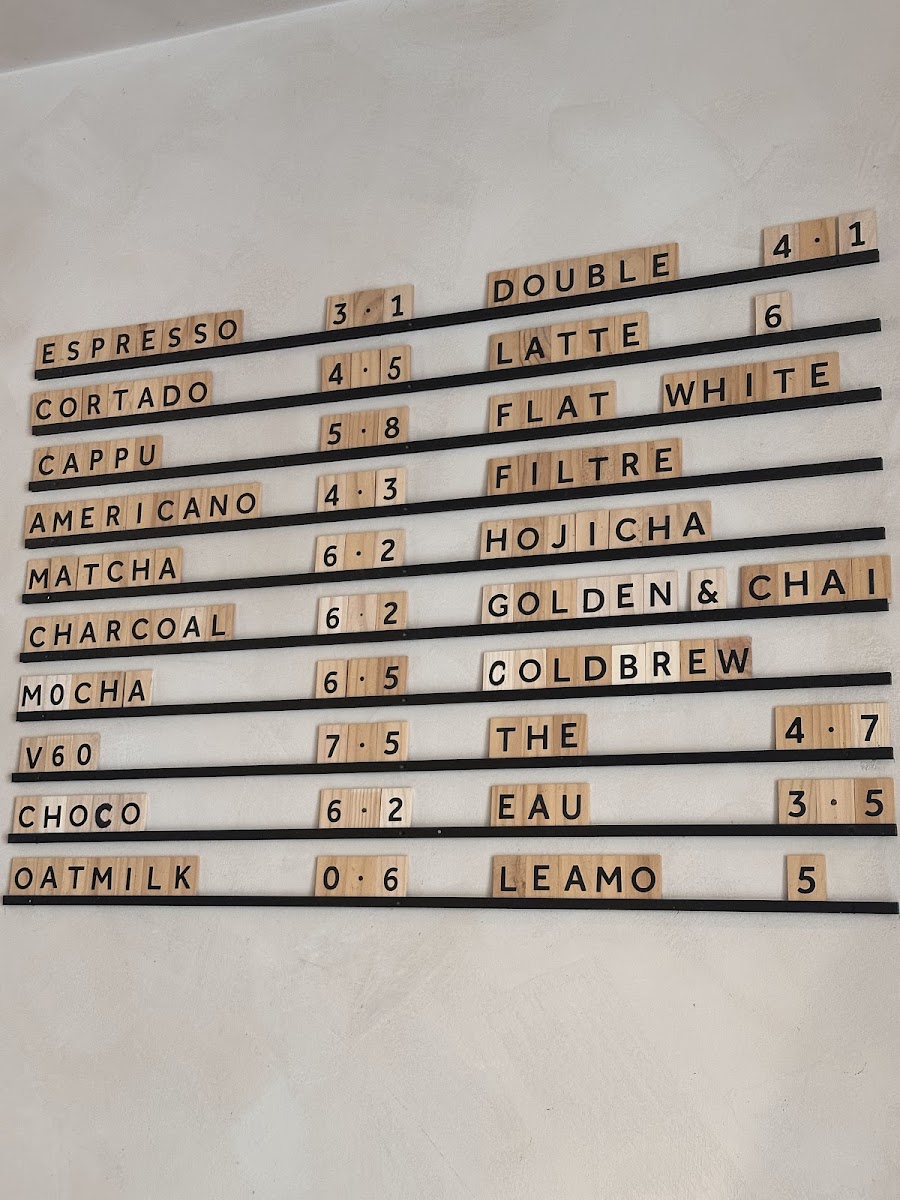 ESPRESSO 3·1 DOUBLE 4·1
CORTADO 4·5 LATTE 6
CAPPU 5·8 FLAT WHITE
AMERICANO 4·3 FILTRE
MATCHA 6·2 HOJICHA
CHARCOAL 6·2 GOLDEN & CHAI
MOCHA 6·5 COLDBREW
V60 7·5 THE 4·7
CHOCO 6·2 EAU 3·5
OATMILK 0·6 LEAMO 5